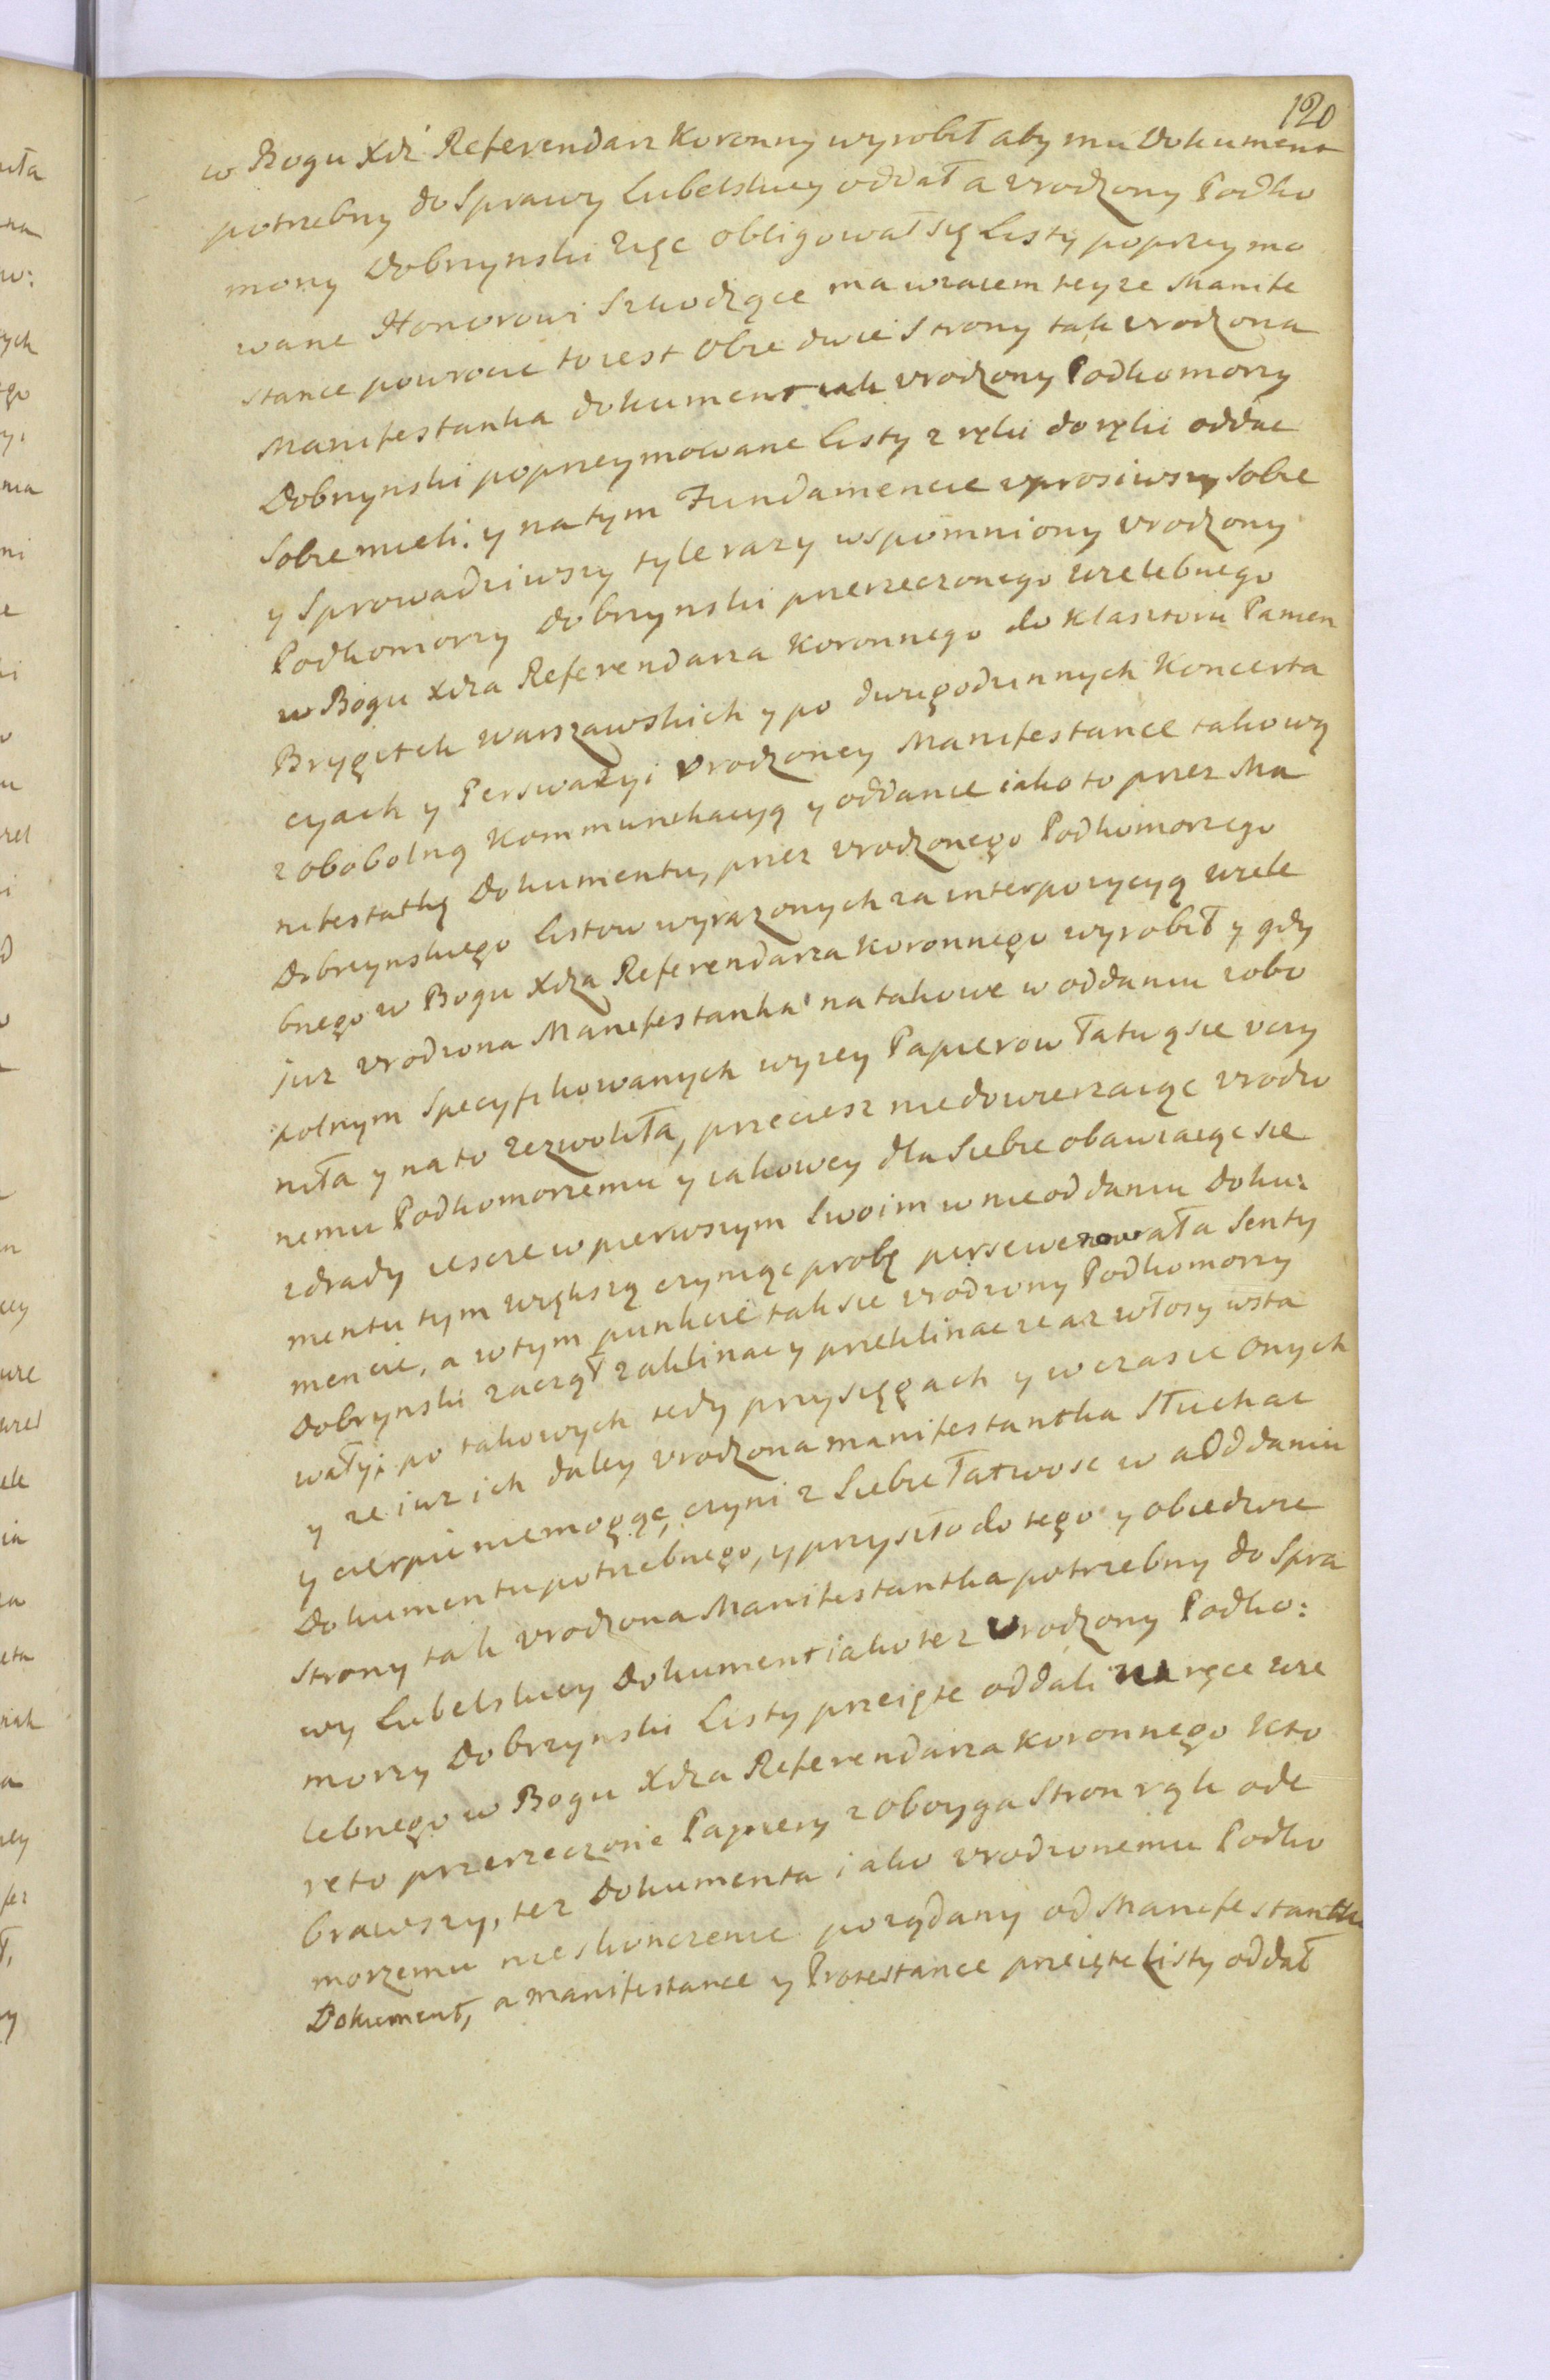 120
w Bogu Xdz Referendarz Koronny wyrobił aby mu Dokument
potrzebny do Sprawy Lubelskiey oddał a vrodzony Podko
mony Dobrzynski zięc obligował się Listy poprzeymo
wane Honorowi Szkodzące ma wzaiem teyze Manife
stance powrocic to iest Obie dwie Strony tak vrodzona
Manifestanka dokument iak vrodzony Podkomorzy
Dobrzynski poprzeymowane Listy z ręki do ręki oddac
Sobie mieli. y na tym Fundamencie vprosiwszy Sobie
y Sprowadziwszy tyle razy wspomniony vrodzony
Podkomorzy Dobrzynski przerzeczonego Wielebnego
w Bogu Xdza Referendarza Koronnego do Klasztoru Panien
Brygitek Warszawskich y po dwugodzinnych Koncerta
cyach y Perswazyi Vrodzoney Manifestance takową
zobobolną Kommunikacyą y oddanie iako to przez Ma
nifestatkę Dokumentu, przez vrodzonego Podkomorzego
Dobrzynskiego Listow wyrazonych za interpozycyą Wiele
bnego w Bogu Xdza Referendarza Koronnego wyrobił y gdy
juz vrodzona Manifestanka na takowe w oddaniu zobo
polnym Specyfikowanych wyzey Papierow Łatwą sie vczy
niła y na to zezwoliła, przeciesz niedowierzaiąc vrodzo
nemu Podkomorzemu y iakowey dla Siebie obawiaiąc sie
zdrady iescze w pierwszym Swoim w nieoddaniu Doku:
mentu tym większą czyniąc probę persewerowała Senty
mencie, a w tym punkcie tak sie vrodzony Podkomorzy
Dobrynski zaczął zaklinac y przeklinac ze az włosy wsta
wały; po takowych tedy przysięgach y w czasie onych
y ze iuz ich daley vrodzona manifestantka Słuchac
y cierpie niemogąc, czyni z Siebie Łatwosc w aDddaniu
Dokumentu potrzebnego, y przyszło do tego y obiedwie
Strony tak vrodzona Manifestantka potrzebny do Spra
wy Lubelskiey Dokument iako tez Vrodzony Podko:
morzy Dobrzynski Listy przeięte oddali na ręce Wie
lebnego w Bogu Xdza Referendarza Koronnego Kto
reto przerzeczone Papiery z oboyga Stron rąk ode
brawszy, tez Dokumenta iako vrodzonemu Podko
morzemu nieskonczenie porządany od Manifestantki
Dokument, a manifestance y Protestance przeięte Listy oddał